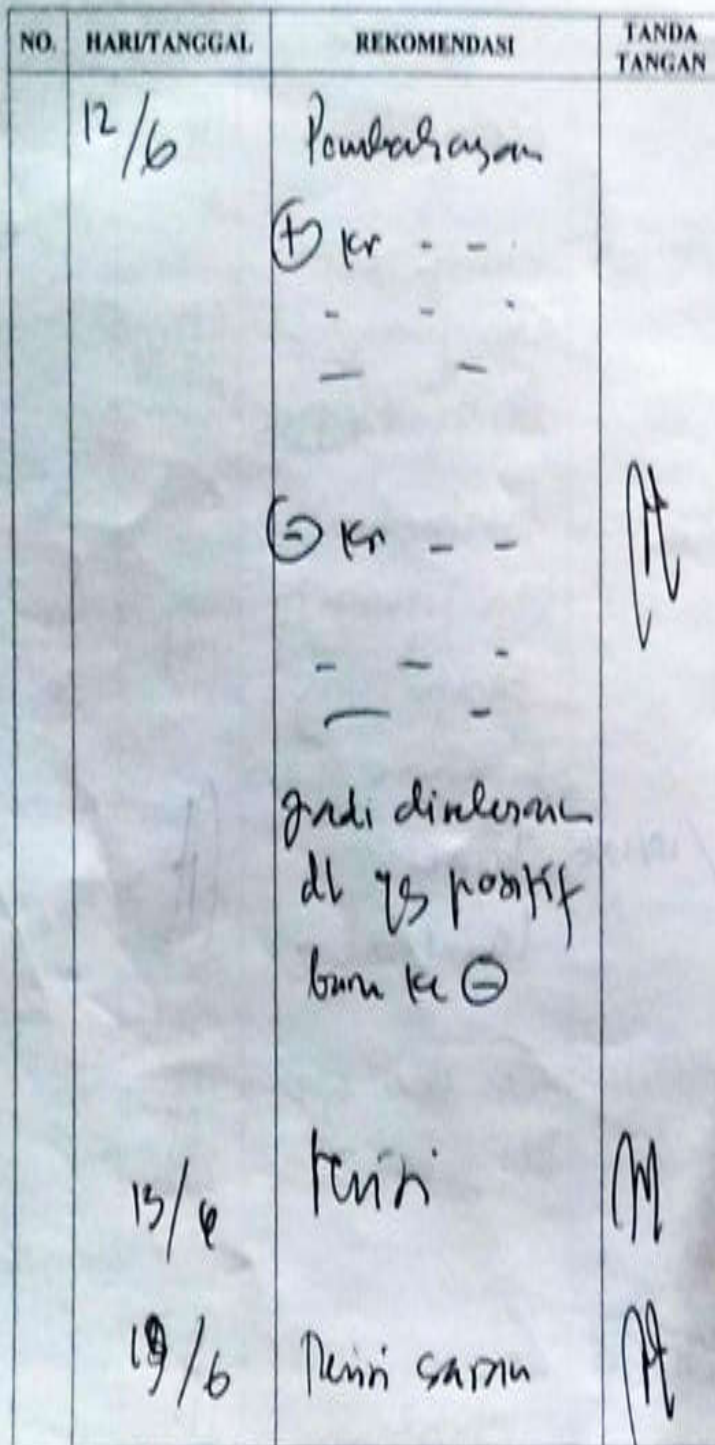 NO. HARI/TANGGAL REKOMENDASI TANDA TANGAN
12/6 Pembahasan
(+) kr - -
- - -
- -
(-) kr - -
- - -
- -
jadi diselesaikan
dl yg positif
baru ke (-)
13/6 Revisi
19/6 Revisi saran